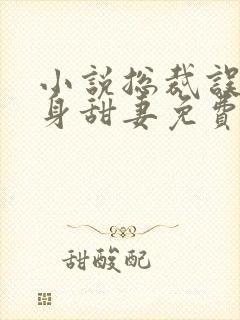 小説總裁誤
身甜妻免費
甜酸配